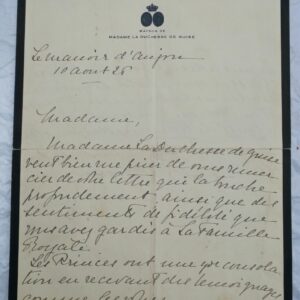 MAISON DE
MADAME LA DUCHESSE DE GUISE
Le Manoir d'Anjou
10 Aout 26
Madame,
Madame La Duchesse de Guise
veut bien me prier de vous remer
cier de votre lettre qui la touche
profondément, ainsi que des
sentiments de fidélité que
vous avez gardés à La Famille
Royale.
Les Princes ont une consolation
en recevant des temoignages
comme